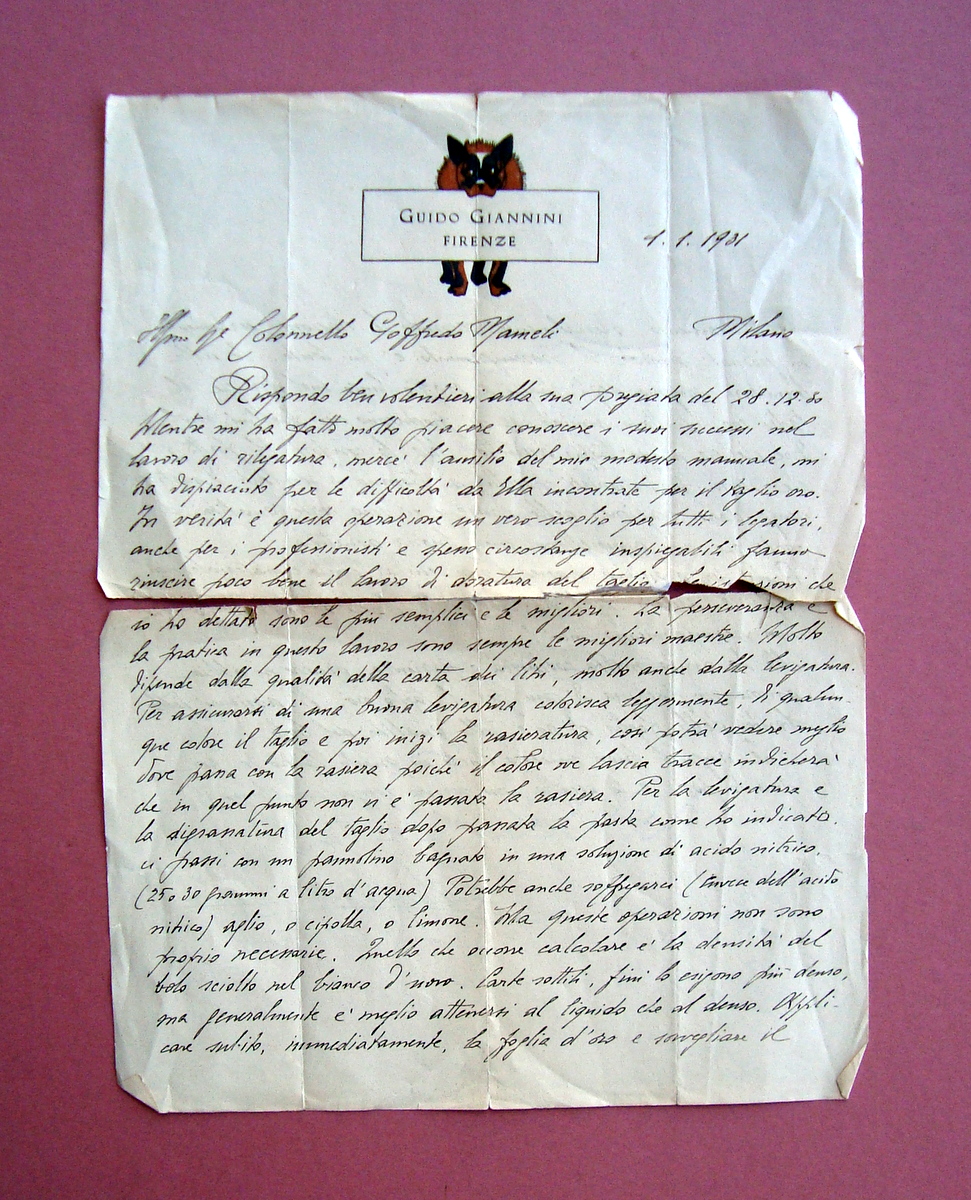 GUIDO GIANNINI
FIRENZE
1. 1. 1931
Colonnello Goffredo Mameli Milano
Rispondo ben volentieri alla sua pregiata del 28.12.30
Mentre mi ha fatto molto piacere conoscere i suoi successi nel
lavoro di rilegatura, mercè l'ausilio del mio modesto manuale, mi
ha dispiaciuto per le difficoltà da Ella incontrate per il taglio oro.
In verità è questa operazione un vero scoglio per tutti i legatori,
anche per i professionisti e spesso circostanze inspiegabili fanno
riuscire poco bene il lavoro di doratura del taglio. Le istruzioni che
io ho dettato sono le più semplici e le migliori. La perseveranza e
la pratica in questo lavoro sono sempre le migliori maestre. Molto
dipende dalla qualità della carta dei libri, molto anche dalla levigatura.
Per assicurarsi di una buona levigatura colorisca leggermente, di qualun-
que colore il taglio e poi inizi la rasieratura, così potrà vedere meglio
dove passa con la rasiera poiché il colore ne lascia tracce indicherà
che in quel punto non vi è passata la rasiera. Per la levigatura e
la digrassatura del taglio dopo passata la pasta come ho indicato.
ci passi con un pannolino bagnato in una soluzione di acido nitrico.
(25 o 30 grammi a litro d'acqua) Potrebbe anche soffregarci (invece dell'acido
nitrico) aglio, o cipolla, o limone. Ma queste operazioni non sono
proprio necessarie. Quello che occorre calcolare è la densità del
bolo sciolto nel bianco d'uovo. Carte sottili, fini lo esigono più denso,
ma generalmente è meglio attenersi al liquido che al denso. Appli-
care subito, immediatamente, la foglia d'oro e sorvegliare il